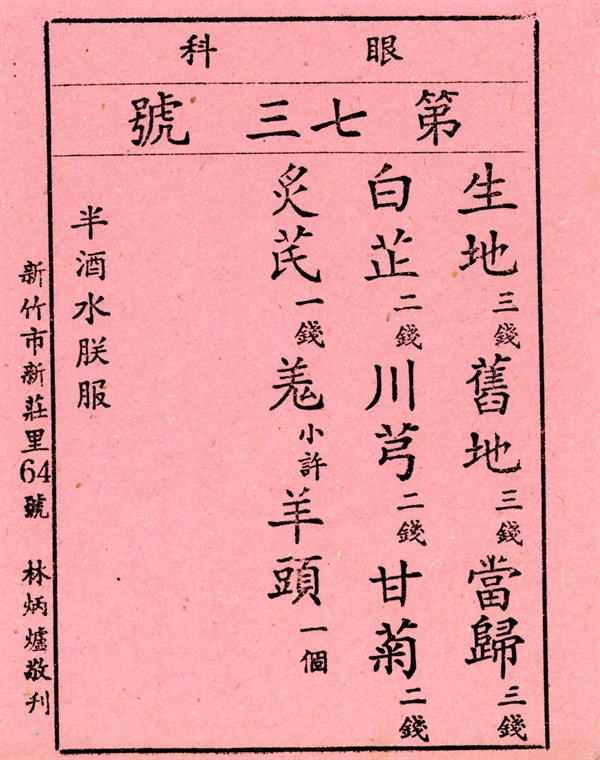 眼科
第七三號
生地三錢舊地三錢當歸三錢
白芷二錢川芎二錢甘菊二錢
炙芪一錢羗小許羊頭一個
半酒水朕服
新竹市新莊里64號 林炳爐敬刋